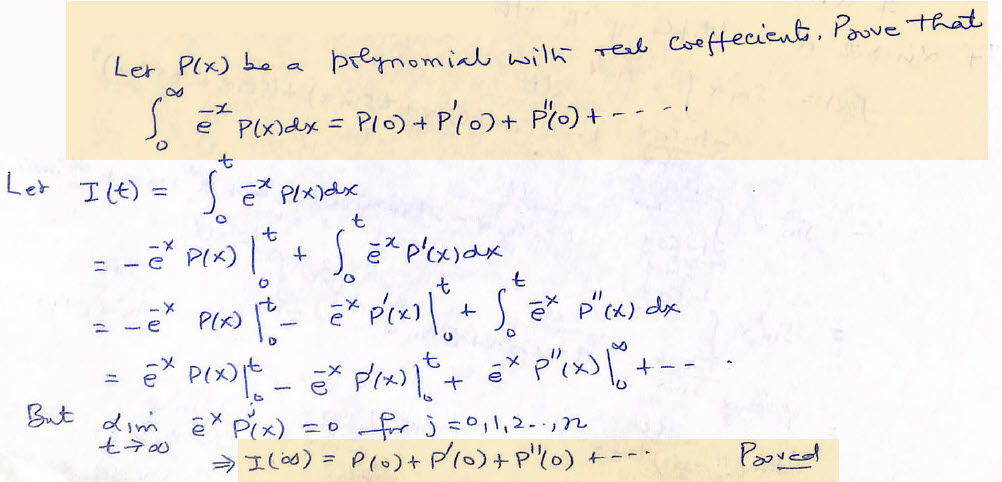 Let P(x) be a polynomial with real coeffecients. Prove that
∫₀^∞ e^{-x} P(x)dx = P(0) + P'(0) + P''(0) + - - - -
Let I(t) = ∫₀^t e^{-x} P(x)dx
= - e^{-x} P(x) |₀^t + ∫₀^t e^{-x} P'(x)dx
= - e^{-x} P(x) |₀^t - e^{-x} P'(x) |₀^t + ∫₀^t e^{-x} P''(x) dx
= e^{-x} P(x) |₀^t - e^{-x} P'(x) |₀^t + e^{-x} P''(x) |₀^∞ + - - -
But lim_{t→∞} e^{-x} P^j(x) = 0 for j = 0,1,2..,n
⇒ I(∞) = P(0) + P'(0) + P''(0) + - - - Proved